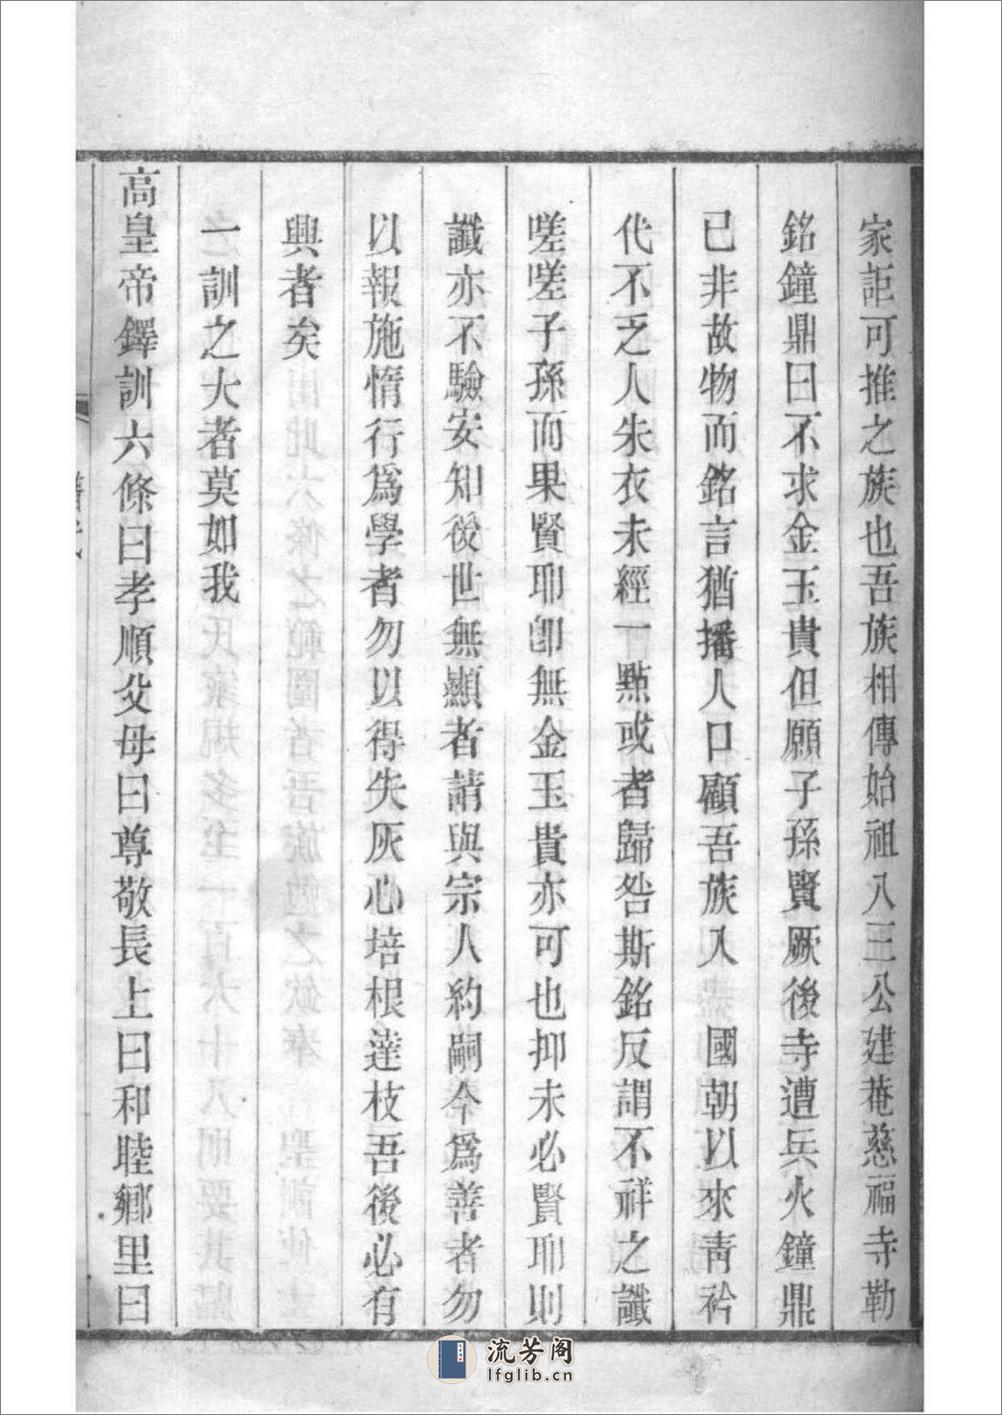 家詎可推之族也吾族相傳始祖八三公建菴慈福寺勒
銘鐘鼎曰不求金玉貴但願子孫賢厥後寺遭兵火鐘鼎
已非故物而銘言猶播人口顧吾族入　國朝以來青衿
代不乏人朱衣未經一點或者歸咎斯銘反謂不祥之讖
嗟嗟子孫而果賢耶卽無金玉貴亦可也抑未必賢耶則
讖亦不驗安知後世無顯者請與宗人約嗣今爲善者勿
以報施惰行爲學者勿以得失灰心培根達枝吾後必有
興者矣
一訓之大者莫如我
高皇帝鐸訓六條曰孝順父母曰尊敬長上曰和睦鄉里曰
流芳阁
lfglib.cn